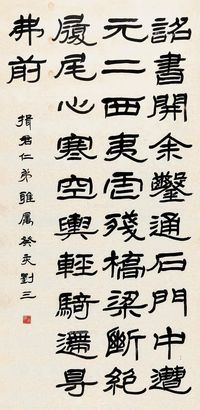 詔書開余鑿通石門中遭
元二西夷虐殘橋梁斷絕
履尾心寒空輿輕騎遰㝵
弗前
揖君仁弟雅屬癸亥劉三